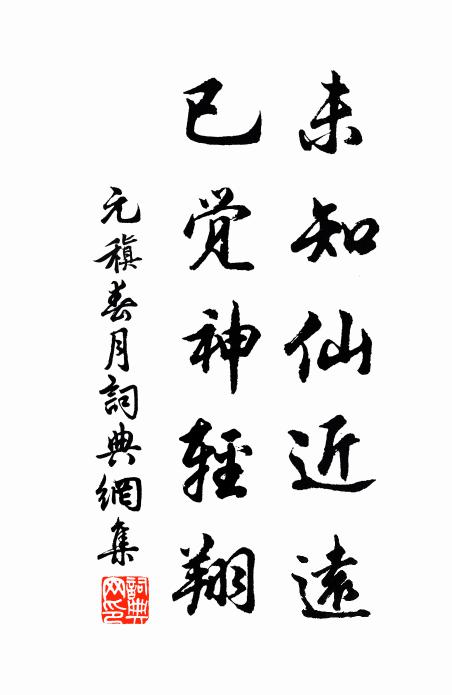 未知仙近遠
已觉神輕翔
元稹春月詞典網集
詞典网印